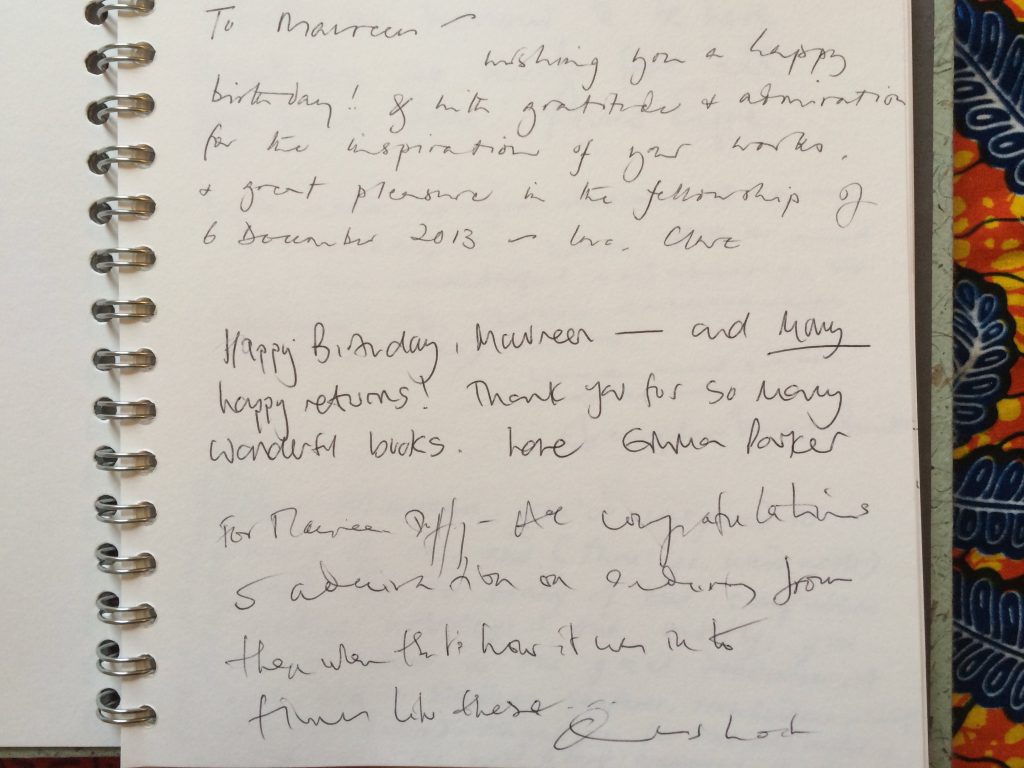 To Maureen ~
wishing you a happy
birthday! & with gratitude + admiration
for the inspiration of your works,
+ great pleasure in the fellowship of
6 December 2013 ~ love, Clare
Happy Birthday, Maureen — and Many
happy returns! Thank you for so many
wonderful books. Love Emma Parker
For Maureen Duffy - congratulations
admiration on enduring from
then when that's how it was into
times like these